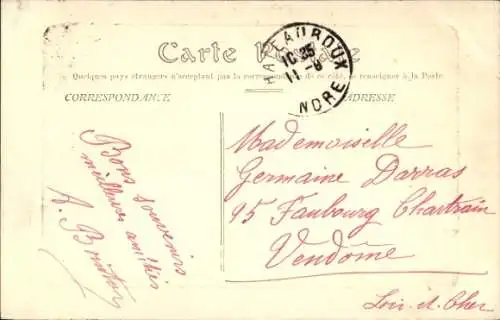 Carte Postale
Quelques pays étrangers n'acceptant pas la correspondance de ce côté, se renseigner à la Poste.
CORRESPONDANCE
ADRESSE
CHATEAUROUX
10 25
11 - 8
INDRE
Bons souvenirs
meilleures amitiés
Mademoiselle
Germaine Darras
95 Faubourg Chartrain
Vendôme
Loir-et-Cher